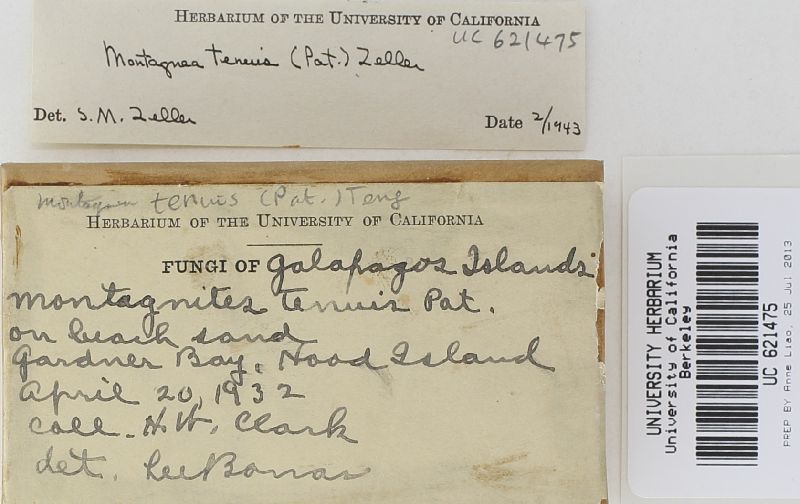 HERBARIUM OF THE UNIVERSITY OF CALIFORNIA
UC 621475
Montagnea tenuis (Pat.) Zeller
Det. S.M. Zeller
Date 2/1943
Montagnea tenuis (Pat.) Teng
HERBARIUM OF THE UNIVERSITY OF CALIFORNIA
FUNGI OF Galapagos Islands
Montagnites tenuis Pat.
on beach sand
Gardner Bay, Hood Island
April 20, 1932
Coll. H.W. Clark
det. Lee Bonar
UNIVERSITY HERBARIUM
University of California
Berkeley
UC 621475
PREP BY Anne Liao, 25 Jul 2013